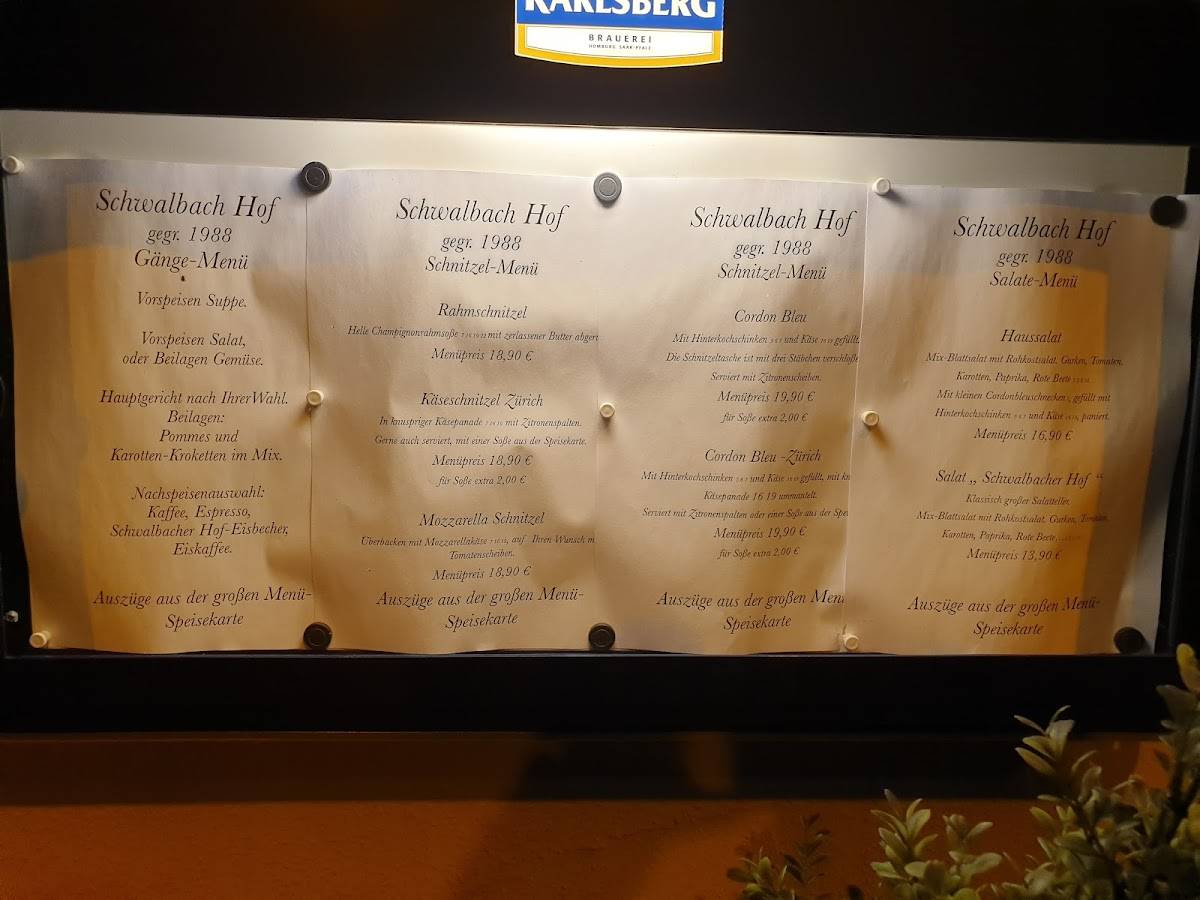 KARLSBERG
BRAUEREI
HOMBURG, SAAR-PFALZ
Schwalbach Hof
gegr. 1988
Gänge-Menü
Vorspeisen Suppe.
Vorspeisen Salat,
oder Beilagen Gemüse.
Hauptgericht nach IhrerWahl.
Beilagen:
Pommes und
Karotten-Kroketten im Mix.
Nachspeisenauswahl:
Kaffee, Espresso,
Schwalbacher Hof-Eisbecher,
Eiskaffee.
Auszüge aus der großen Menü-
Speisekarte
Schwalbach Hof
gegr. 1988
Schnitzel-Menü
Rahmschnitzel
Helle Champignonrahmsoße mit zerlassener Butter
Menüpreis 18,90 €
Käseschnitzel Zürich
In knuspriger Käsepanade mit Zitronenspalten.
Gerne auch serviert, mit einer Soße aus der Speisekarte.
Menüpreis 18,90 €
für Soße extra 2,00 €
Mozzarella Schnitzel
Überbacken mit Mozzarellakäse auf Ihren Wunsch
Tomatenscheiben.
Menüpreis 18,90 €
Auszüge aus der großen Menü-
Speisekarte
Schwalbach Hof
gegr. 1988
Schnitzel-Menü
Cordon Bleu
Mit Hinterkochschinken und Käse gefüllt.
Die Schnitzeltasche ist mit drei Stäbchen
Serviert mit Zitronenscheiben.
Menüpreis 19,90 €
für Soße extra 2,00 €
Cordon Bleu -Zürich
Mit Hinterkochschinken und Käse gefüllt, mit
Käsepanade 16 19 ummantelt.
Serviert mit Zitronenspalten oder einer Soße aus der
Menüpreis 19,90 €
für Soße extra 2,00 €
Auszüge aus der großen
Speisekarte
Schwalbach Hof
gegr. 1988
Salate-Menü
Haussalat
Mix-Blattsalat mit Rohkostsalat. Gurken, Tomaten,
Karotten, Paprika, Rote Beete
Mit kleinen Cordonbleuschnecken, gefüllt mit
Hinterkochschinken und Käse paniert.
Menüpreis 16,90 €
Salat „ Schwalbacher Hof “
Klassisch großer Salatteller.
Mix-Blattsalat mit Rohkostsalat. Gurken, Tomaten,
Karotten, Paprika, Rote Beete
Menüpreis 13,90 €
Auszüge aus der großen Menü-
Speisekarte